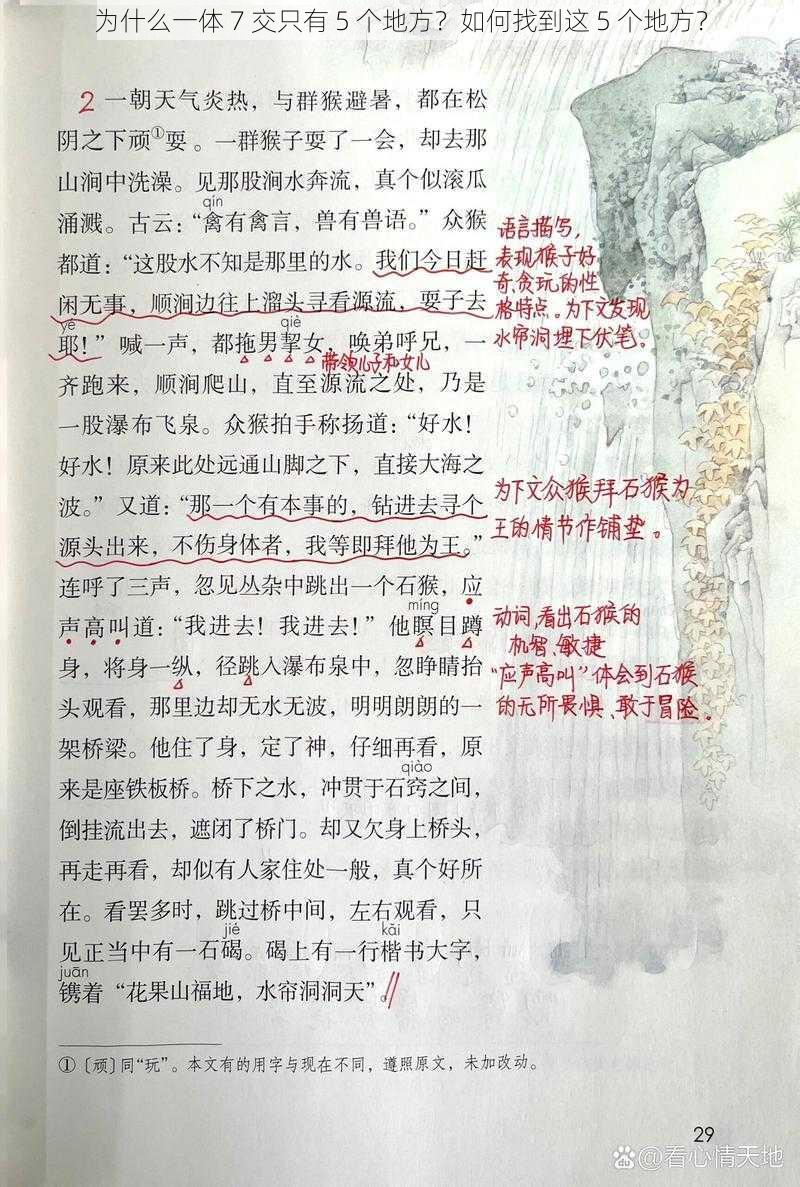 为什么一体 7 交只有 5 个地方？如何找到这 5 个地方？
2 一朝天气炎热，与群猴避暑，都在松
阴之下顽①耍。一群猴子耍了一会，却去那
山涧中洗澡。见那股涧水奔流，真个似滚瓜
qín
涌溅。古云：“禽有禽言，兽有兽语。”众猴
都道：“这股水不知是那里的水。我们今日赶
闲无事，顺涧边往上溜头寻看源流，耍子去
yé
qiè
耶！”喊一声，都拖男挈女，唤弟呼兄，一
带领儿子和女儿
齐跑来，顺涧爬山，直至源流之处，乃是
一股瀑布飞泉。众猴拍手称扬道：“好水！
好水！原来此处远通山脚之下，直接大海之
波。”又道：“那一个有本事的，钻进去寻个
源头出来，不伤身体者，我等即拜他为王。”
连呼了三声，忽见丛杂中跳出一个石猴，应
míng
声高叫道：“我进去！我进去！”他瞑目蹲
身，将身一纵，径跳入瀑布泉中，忽睁睛抬
头观看，那里边却无水无波，明明朗朗的一
架桥梁。他住了身，定了神，仔细再看，原
qiào
来是座铁板桥。桥下之水，冲贯于石窍之间，
倒挂流出去，遮闭了桥门。却又欠身上桥头，
再走再看，却似有人家住处一般，真个好所
在。看罢多时，跳过桥中间，左右观看，只
jié
kǎi
见正当中有一石碣。碣上有一行楷书大字，
juān
镌着“花果山福地，水帘洞洞天”。
语言描写，
表现猴子好
奇、贪玩的性
格特点。为下文发现
水帘洞埋下伏笔。
为下文众猴拜石猴为
王的情节作铺垫。
动词，看出石猴的
机智、敏捷
“应声高叫”体会到石猴
的无所畏惧、敢于冒险。
①〔顽〕同“玩”。本文有的用字与现在不同，遵照原文，未加改动。
29
@看心情天地